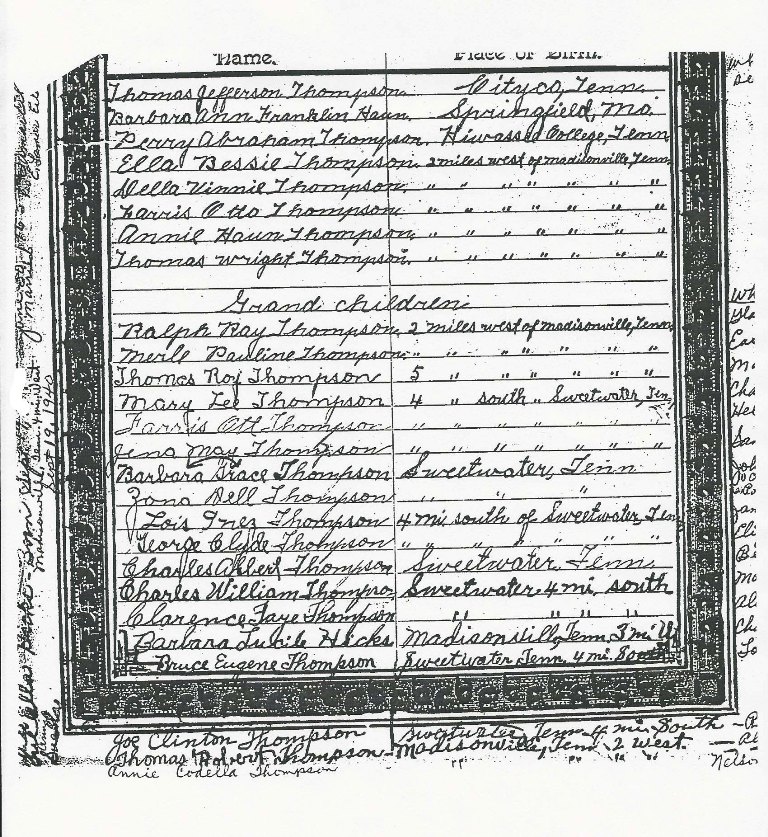 Name. Place of Birth.
Thomas Jefferson Thompson. Cityco, Tenn.
Barbara Ann Franklin Haun. Springfield, Mo.
Perry Abraham Thompson. Hiwassee College, Tenn
Ella Bessie Thompson. 2 miles west of madisonville, Tenn.
Della Vinnie Thompson. " " " " " " "
Farris Otto Thompson " " " " " " "
Annie Haun Thompson. " " " " " " "
Thomas Wright Thompson. " " " " " " "
Grand children
Ralph Ray Thompson. 2 miles west of madisonville, Tenn,
Merle Pauline Thompson. " " " " " "
Thomas Roy Thompson 5 " " " " "
Mary Lee Thompson 4 " south " Sweetwater, Ten,
Farris Ott Thompson " " " " "
Jena May Thompson " " " " "
Barbara Grace Thompson Sweetwater, Tenn
Zona Dell Thompson " " "
Lois Inez Thompson 4 mi south of Sweetwater, Ten
George Clyde Thompson " " " " " "
Charles Albert Thompson Sweetwater, Tenn.
Charles William Thompso Sweetwater 4 mi, south
Clarence Faye Thompson " " " "
Barbara Lucile Hicks Madisonville, Tenn 3 mi W
Bruce Eugene Thompson Sweetwater Tenn. 4 mi. South
Joe Clinton Thompson Sweetwater, Tenn 4 mi. South
Thomas Robert Thompson - Madisonville, Tenn, 2 West.
Annie Codella Thompson " " " "
Married
Born Sept
Madisonville, Tenn. 4 mi. West
Sept 19, 1940
Nelso